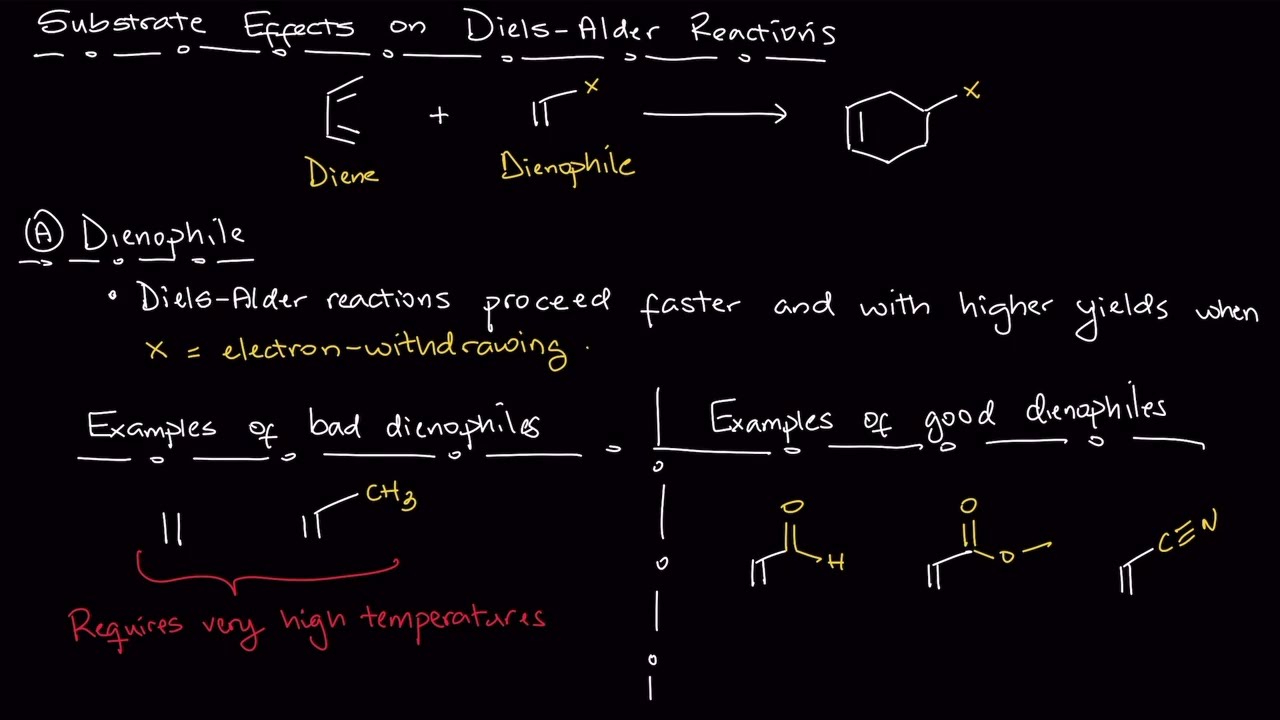 Substrate Effects on Diels-Alder Reactions
X
+
X
Diene
Dienophile
A Dienophile
• Diels-Alder reactions proceed faster and with higher yields when
X = electron-withdrawing.
Examples of bad dienophiles
Examples of good dienophiles
CH3
O
H
O
O
C≡N
Requires very high temperatures